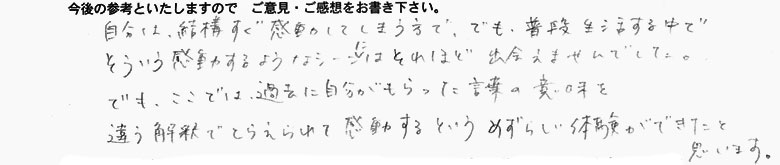 今後の参考といたしますので　ご意見・ご感想をお書き下さい。
自分は、結構すぐ感動してしまう方で、でも、普段生活する中で
そういう感動するようなシーンにはそれほど出会えませんでした。
でも、ここでは、過去に自分がもらった言葉の意味を
違う解釈でとらえられて感動するというめずらしい体験ができたと
思います。